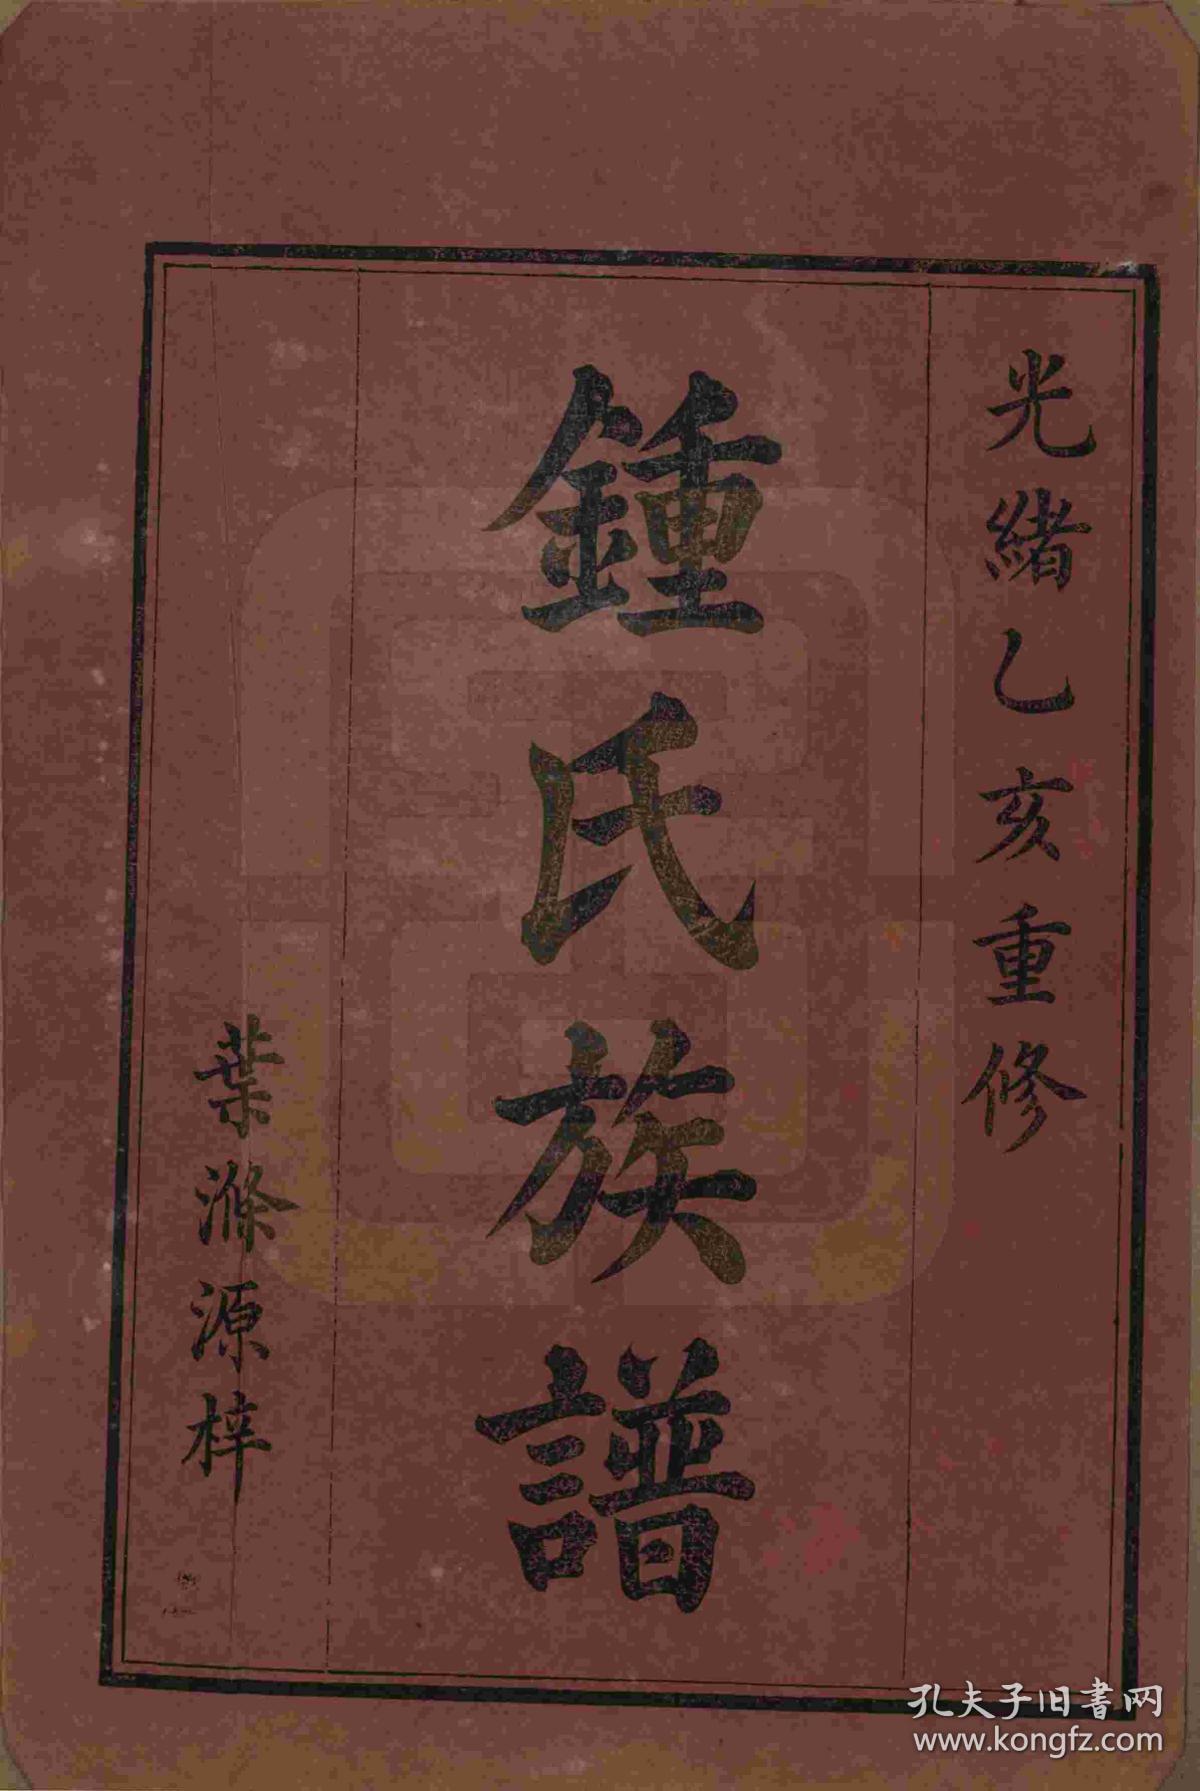 光緒乙亥重修
鍾氏族譜
葉滌源梓
孔夫子旧書网
www.kongfz.com